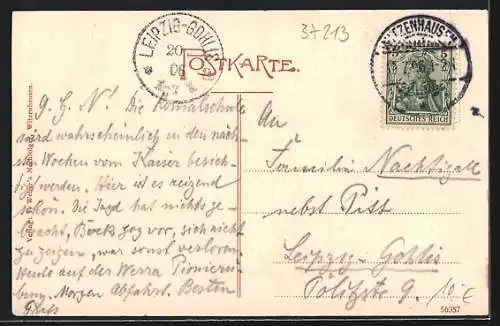 37213
LEIPZIG-GOHLIS
20
06
POSTKARTE.
WITZENHAUSEN
DEUTSCHES REICH
g. E. N! Die Kolonialschule
wird wahrscheinlich in den näch-
sten Wochen vom Kaiser besich-
tigt werden. Hier ist es reizend
schön. Die Jagd hat nichts ge-
bracht, Bock zog vor, sich nicht
zu zeigen, war sonst verloren.
Heute auf der Werra Pionierü-
bung. Morgen Abfahrt. Besten
Gruß
An
Familie Nachtigall
nebst
Leipzig-Gohlis
9.
56357